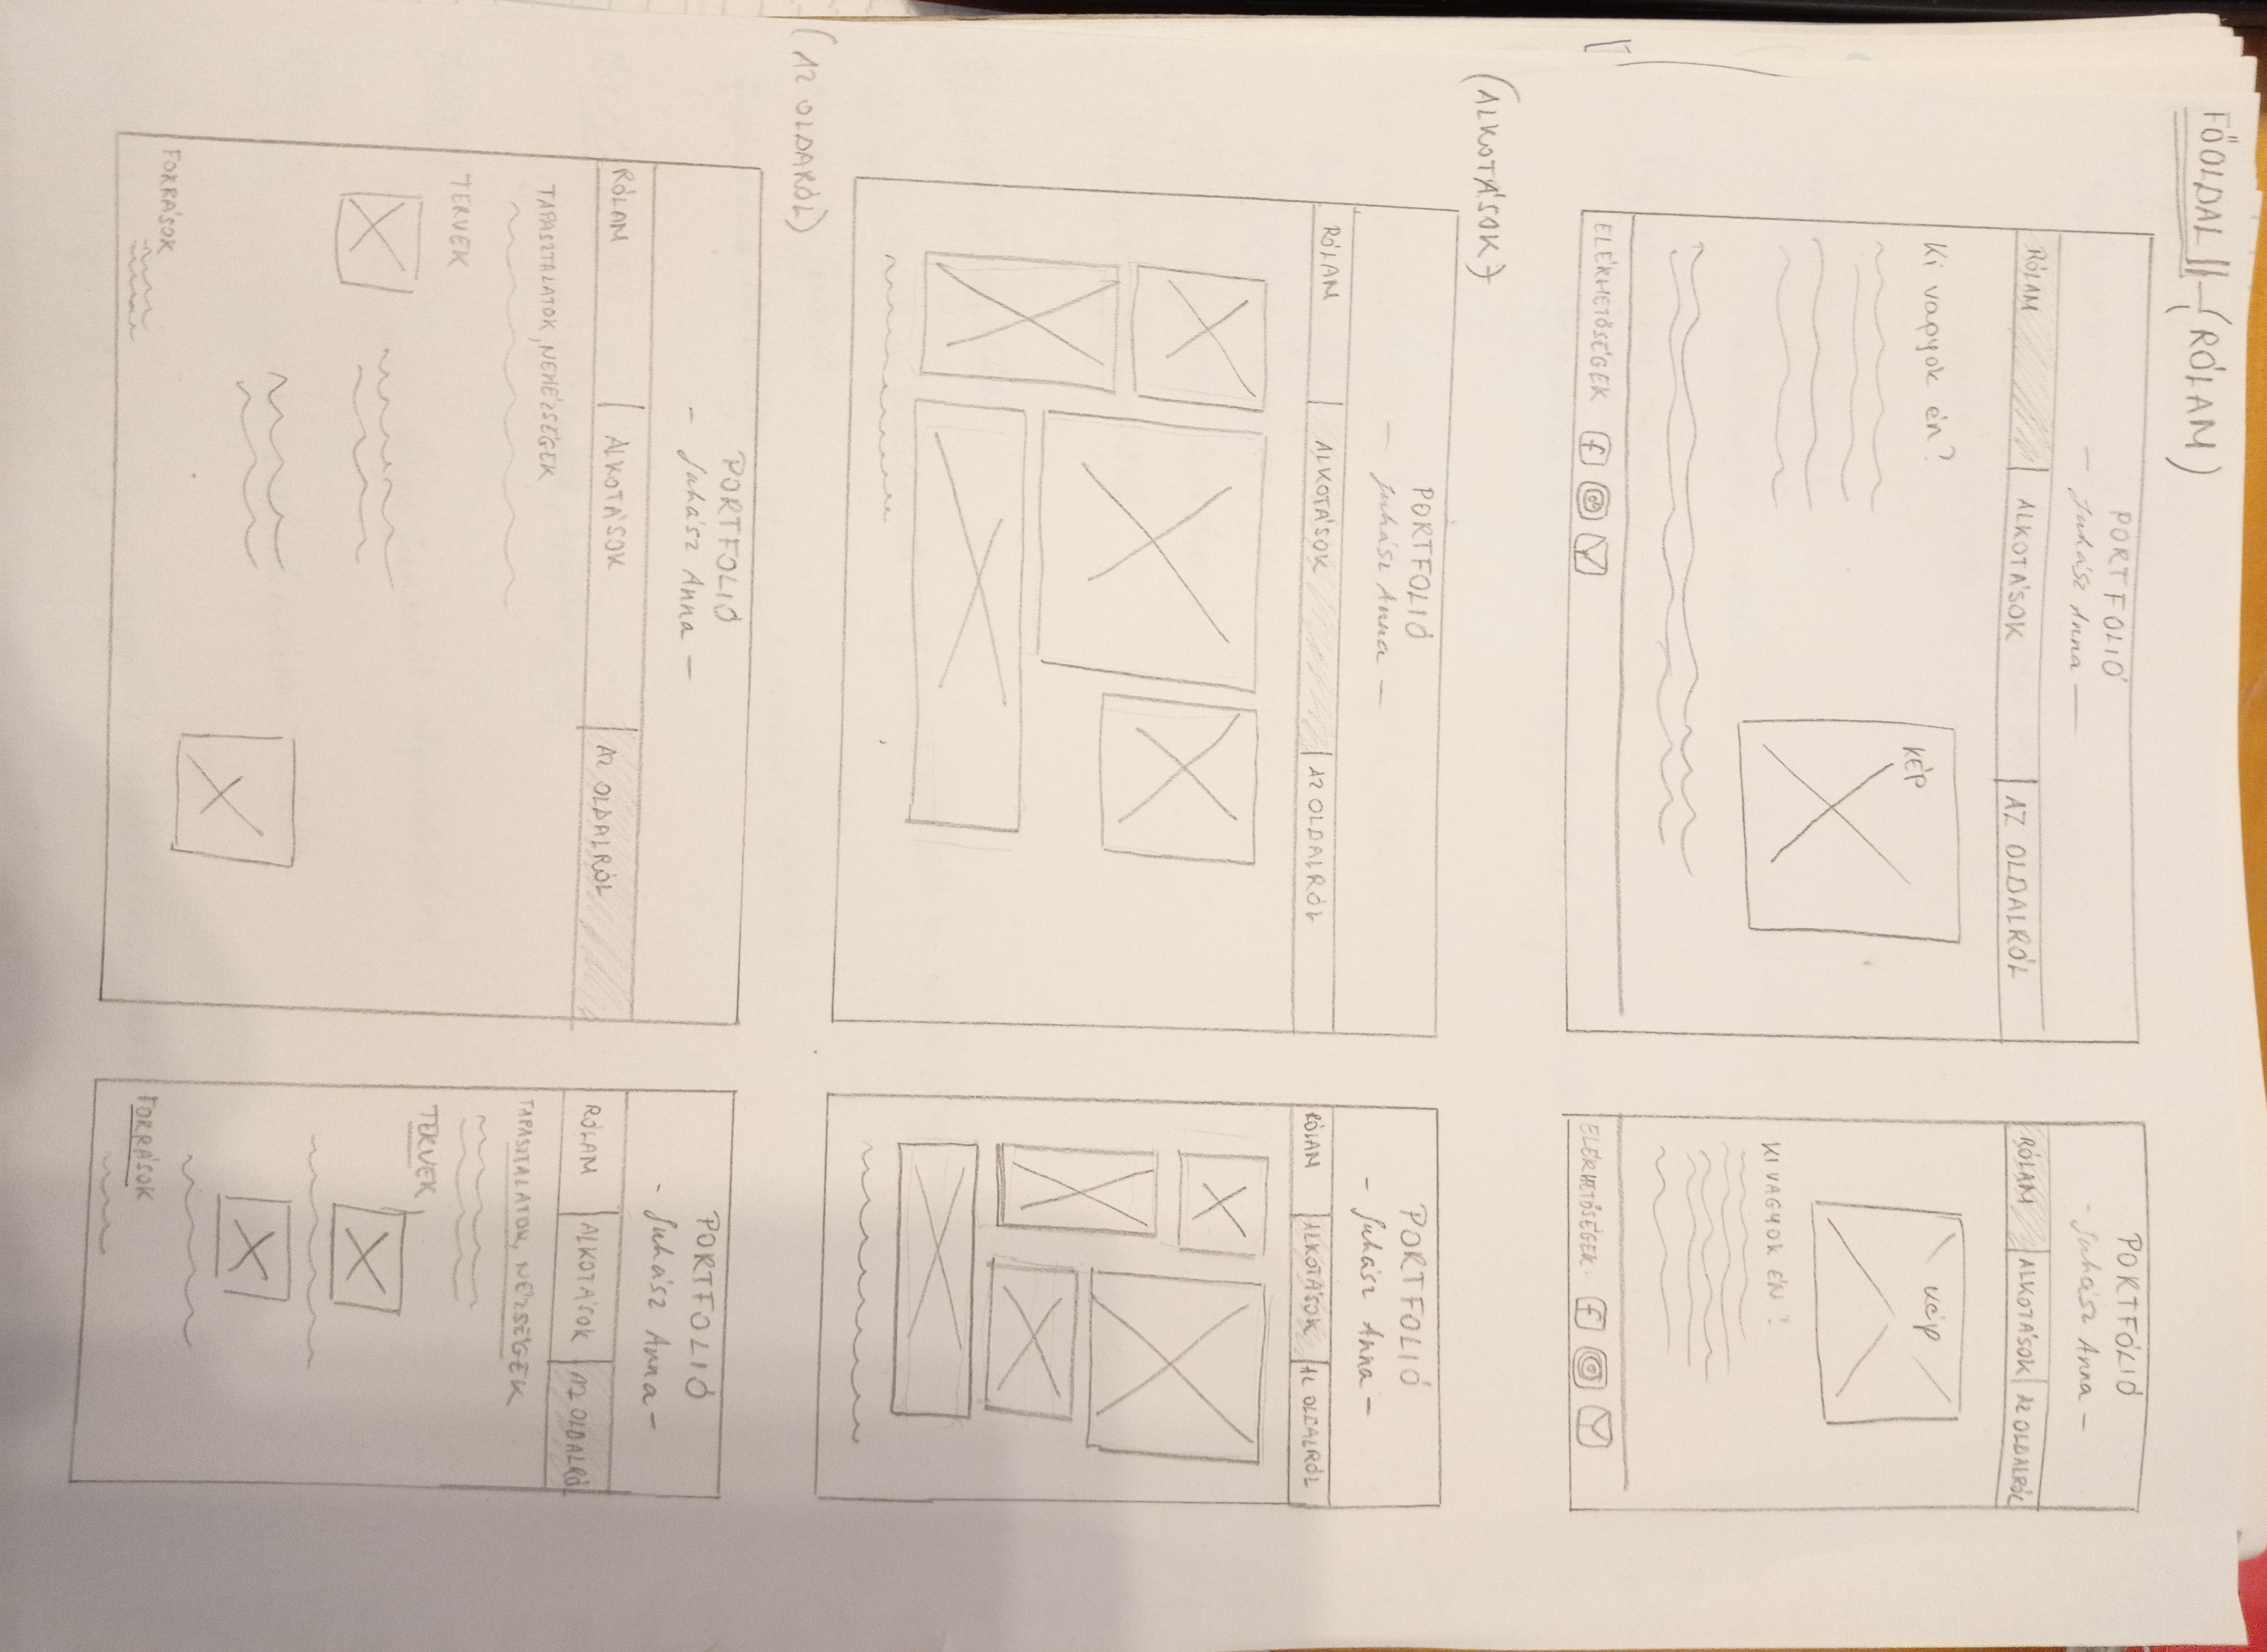 FŐOLDAL || — (RÓLAM)
PORTFOLIÓ
— Juhász Anna —
RÓLAM | ALKOTÁSOK | AZ OLDALRÓL
Ki vagyok én?
KÉP
ELÉRHETŐSÉGEK f
PORTFÓLIÓ
- Juhász Anna -
RÓLAM | ALKOTÁSOK | AZ OLDALRÓL
kép
KI VAGYOK ÉN?
ELÉRHETŐSÉGEK: f
(ALKOTÁSOK)
PORTFOLIÓ
— Juhász Anna —
RÓLAM | ALKOTÁSOK | AZ OLDALRÓL
PORTFOLIÓ
- Juhász Anna -
RÓLAM | ALKOTÁSOK | AZ OLDALRÓL
(AZ OLDARÓL)
PORTFOLIÓ
- Juhász Anna -
RÓLAM | ALKOTÁSOK | AZ OLDALRÓL
TAPASZTALATOK, NEHÉZSÉGEK
TERVEK
FORRÁSOK
PORTFOLIÓ
- Juhász Anna -
RÓLAM | ALKOTÁSOK | AZ OLDALRÓL
TAPASZTALATOK, NÉZSÉGEK
TERVEK
FORRÁSOK